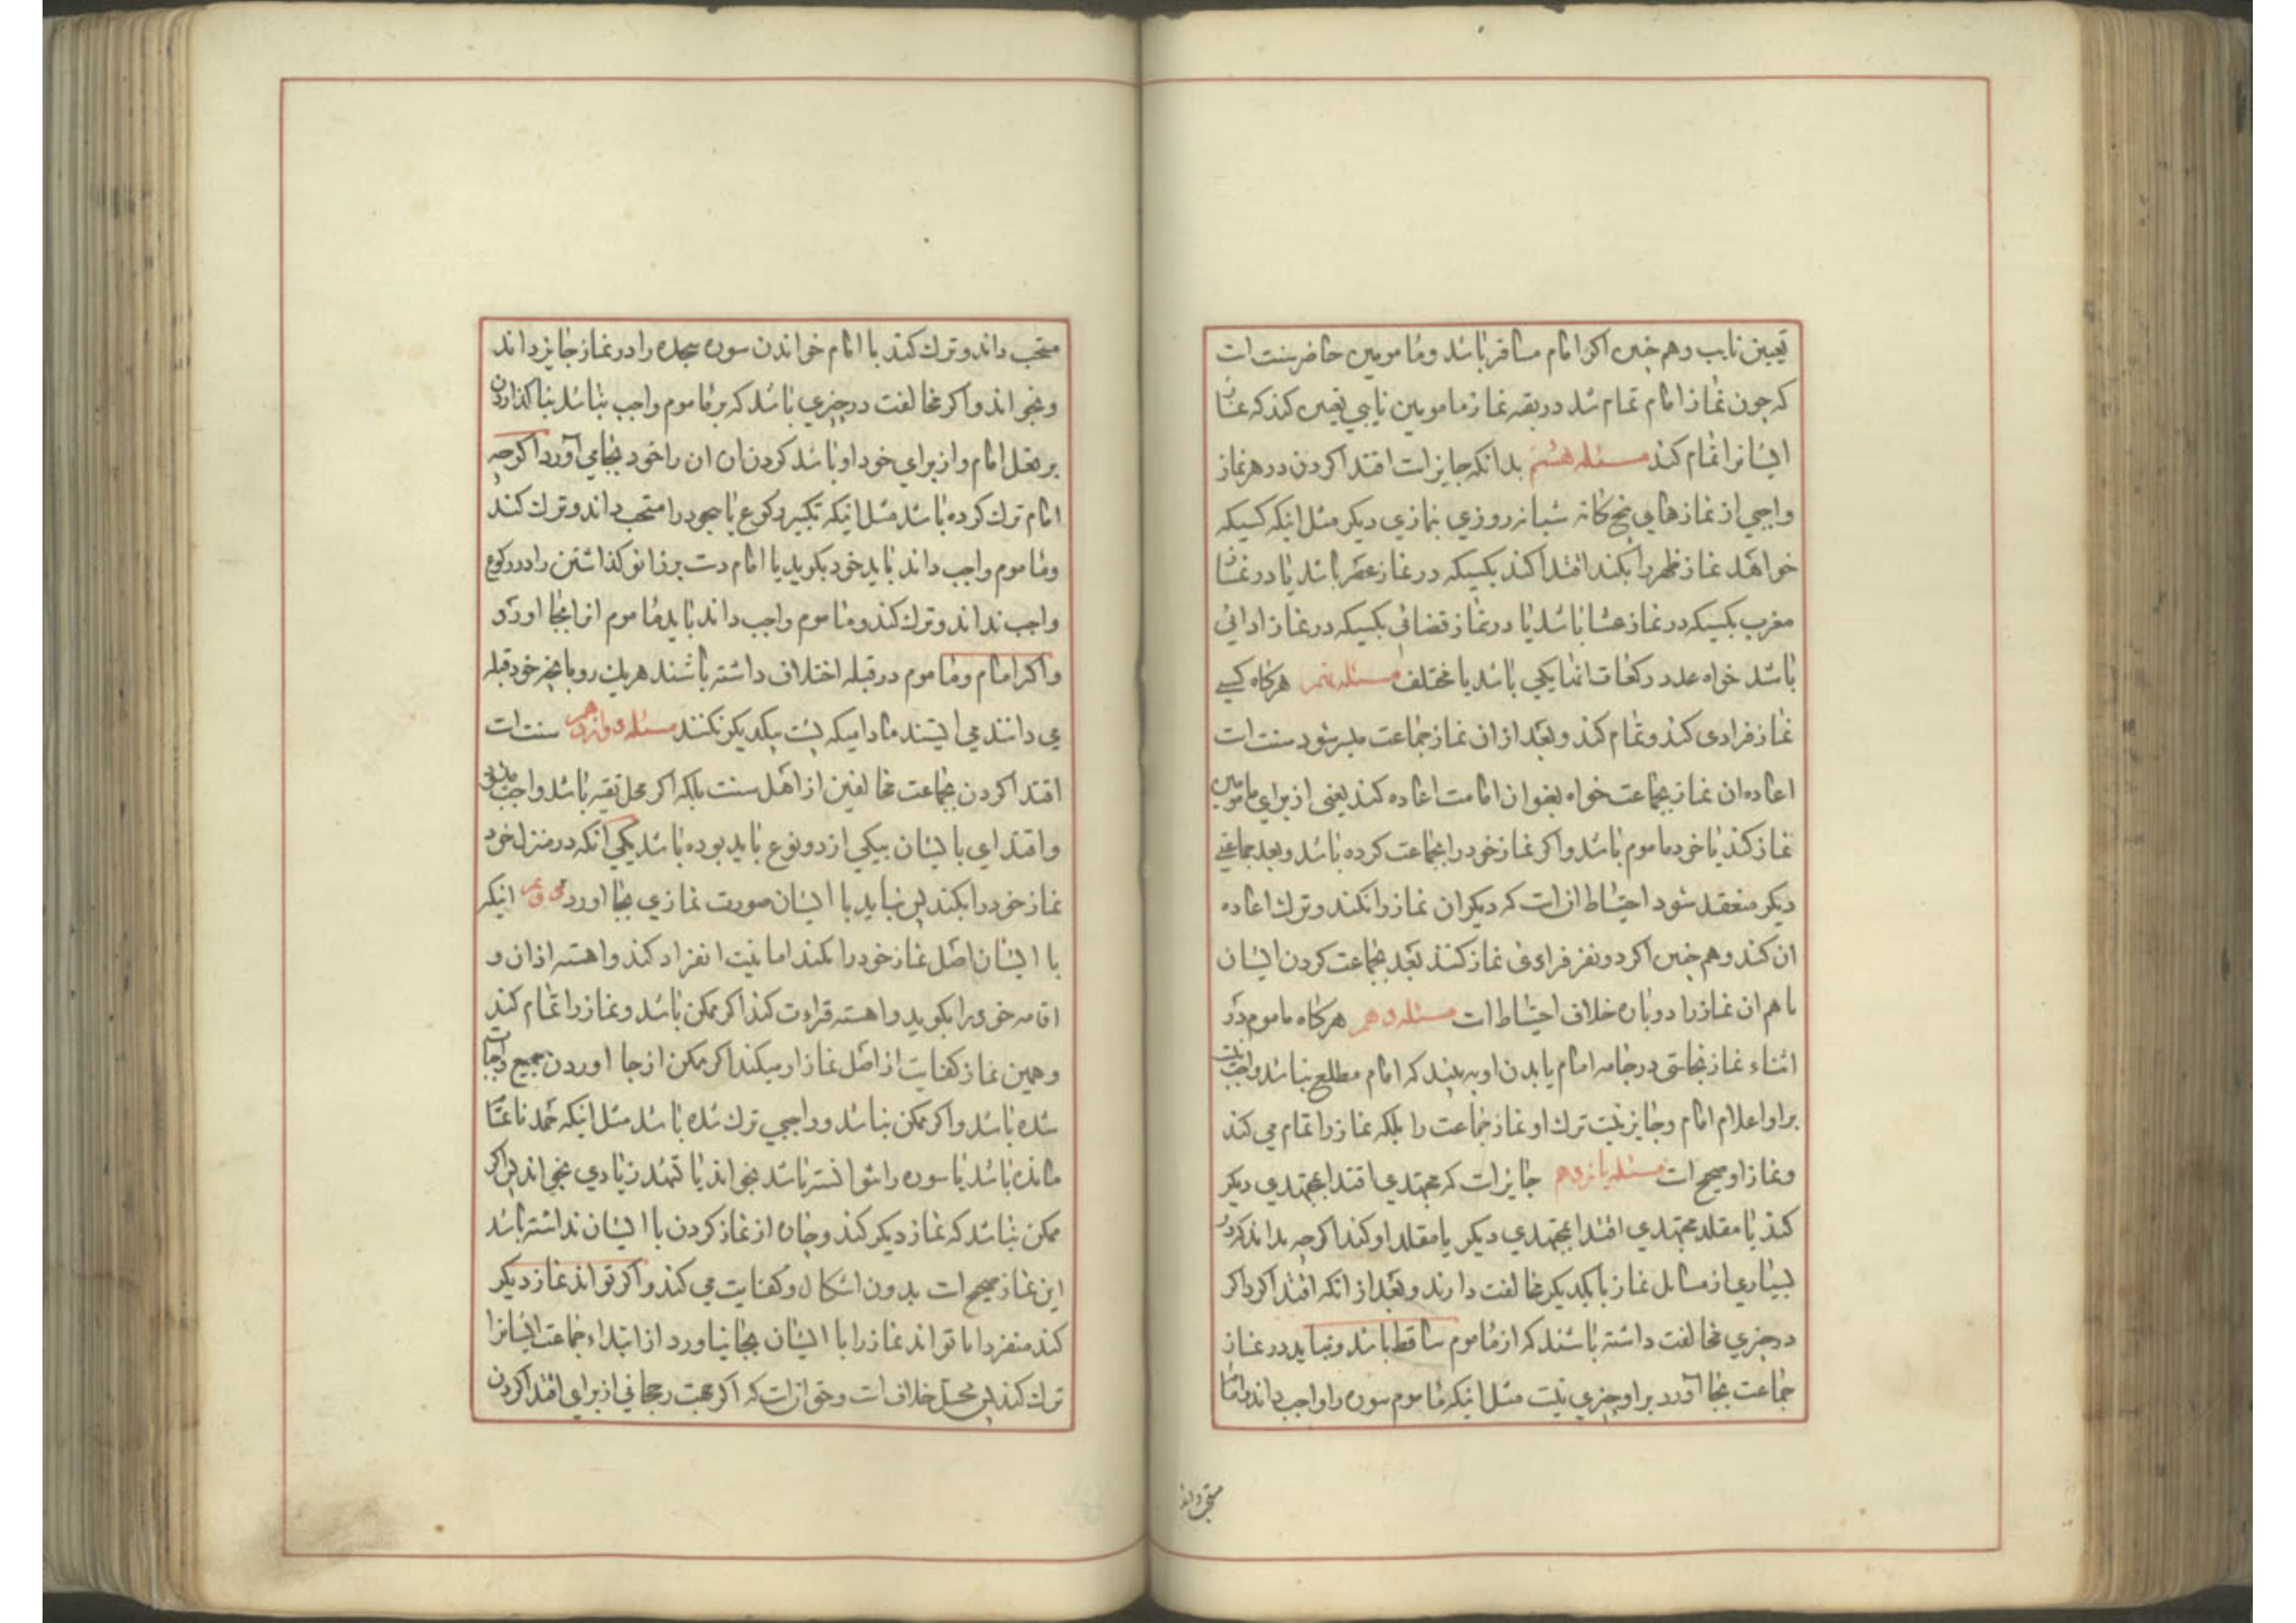 تعیین نایب وهم چنین اکر امام مسافر باشد ومامومین حاضر سنت است
که چون نماز امام تمام شد در بقیه نماز مامومین نایبی تعیین کند که نماز
ایشانرا تمام کند مسئله هشتم بدانکه جایز است اقتدا کردن در هر نماز
واجبی از نمازهای پنج کانه شبانه روزی بنمازی دیکر مثل اینکه کسیکه
خواهد نماز ظهر را بکند اقتدا کند بکسیکه در نماز عصر باشد یا در نماز
مغرب بکسیکه در نماز عشا باشد یا در نماز قضائی بکسیکه در نماز ادائی
باشد خواه عدد رکعات انها یکی باشد یا مختلف مسئله نهم هرکاه کسی
نماز فرادی کند وتمام کند وبعد از ان نماز جماعت میسر شود سنت است
اعاده ان نماز بجماعت خواه بعنوان امامت اعاده کند یعنی از برای مامومین
نماز کند یا خود ماموم باشد واکر نماز خود را بجماعت کرده باشد وبعد جماعتی
دیکر منعقد شود احتیاط انست که دیکر ان نماز را نکند وترک اعاده
ان کند وهم چنین اکر دو نفر فرادی نماز کنند بعد بجماعت کردن ایشان
با هم ان نماز را دوباره خلاف احتیاط است مسئله دهم هرکاه ماموم در
اثناء نماز نجاستی در جامه امام یا بدن او به بیند که امام مطلع نباشد واجب نیست
بر او اعلام امام وجایز نیست ترک او نماز جماعت را بلکه نماز را تمام می کند
ونماز او صحیح است مسئله یازدهم جایز است که مجتهدی اقتدا بمجتهدی دیکر
کند یا مقلد مجتهدی اقتدا بمجتهدی دیکر یا مقلد او کند اکرچه بداند که در
بسیاری از مسائل نماز با یکدیکر مخالفت دارند وبعد از انکه اقتدا کرد اکر
در چیزی مخالفت داشته باشند که از ماموم ساقط باشد ونباید در نماز
جماعت بجا آورد بر او چیزی نیست مثل اینکه ماموم سوره را واجب داند وامام
مستحب داند
مستحب داند وترک کند یا امام خواندن سوره سجده را در نماز جایز داند
وبخواند واکر مخالفت در چیزی باشد که بر ماموم واجب نباشد بنا کذاردن
بر فعل امام واز برای خود او باشد کردن ان ان را خود بجا می آورد اکرچه
امام ترک کرده باشد مثل اینکه تکبیر رکوع یا سجود را مستحب داند وترک کند
وماموم واجب داند باید خود بکوید یا امام دست بر زانو کذاشتن را در رکوع
واجب نداند وترک کند وماموم واجب داند باید ماموم انرا بجا اورد
واکر امام وماموم در قبله اختلاف داشته باشند هریک رو بانچه خود قبله
می دانند می ایستند مادامیکه پشت بیکدیکر نکنند مسئله دوازدهم سنت است
اقتدا کردن بجماعت مخالفین از اهل سنت بلکه اکر محل تقیه باشد واجب
واقتدای با ایشان بیکی از دو نوع باید بوده باشد یکی انکه در منزل خود
نماز خود را بکند پس بیاید با ایشان صورت نمازی بجا اورد دوم اینکه
با ایشان اصل نماز خود را بکند اما نیت انفراد کند واهسته اذان و
اقامه خود را بکوید واهسته قراءت کند اکر ممکن باشد ونماز را تمام کند
وهمین نماز کفایت از اصل نماز او میکند اکر ممکن از بجا اوردن جمیع واجبات
شده باشد واکر ممکن نباشد وواجبی ترک شده باشد مثل اینکه حمد ناتمام
مانده باشد یا سوره را نتوانسته باشد بخواند یا تشهد زیادی بخواند پس اکر
ممکن نباشد که نماز دیکر کند وچاره از نماز کردن با ایشان نداشته باشد
این نماز صحیح است بدون اشکال وکفایت می کند واکر تواند نماز دیکر
کند منفردا یا تواند نماز را با ایشان بجا نیاورد از ابتداء جماعت ایشانرا
ترک کند پس محل خلاف است وحق انست که اکر جهت رجحانی از برای اقتدا کردن